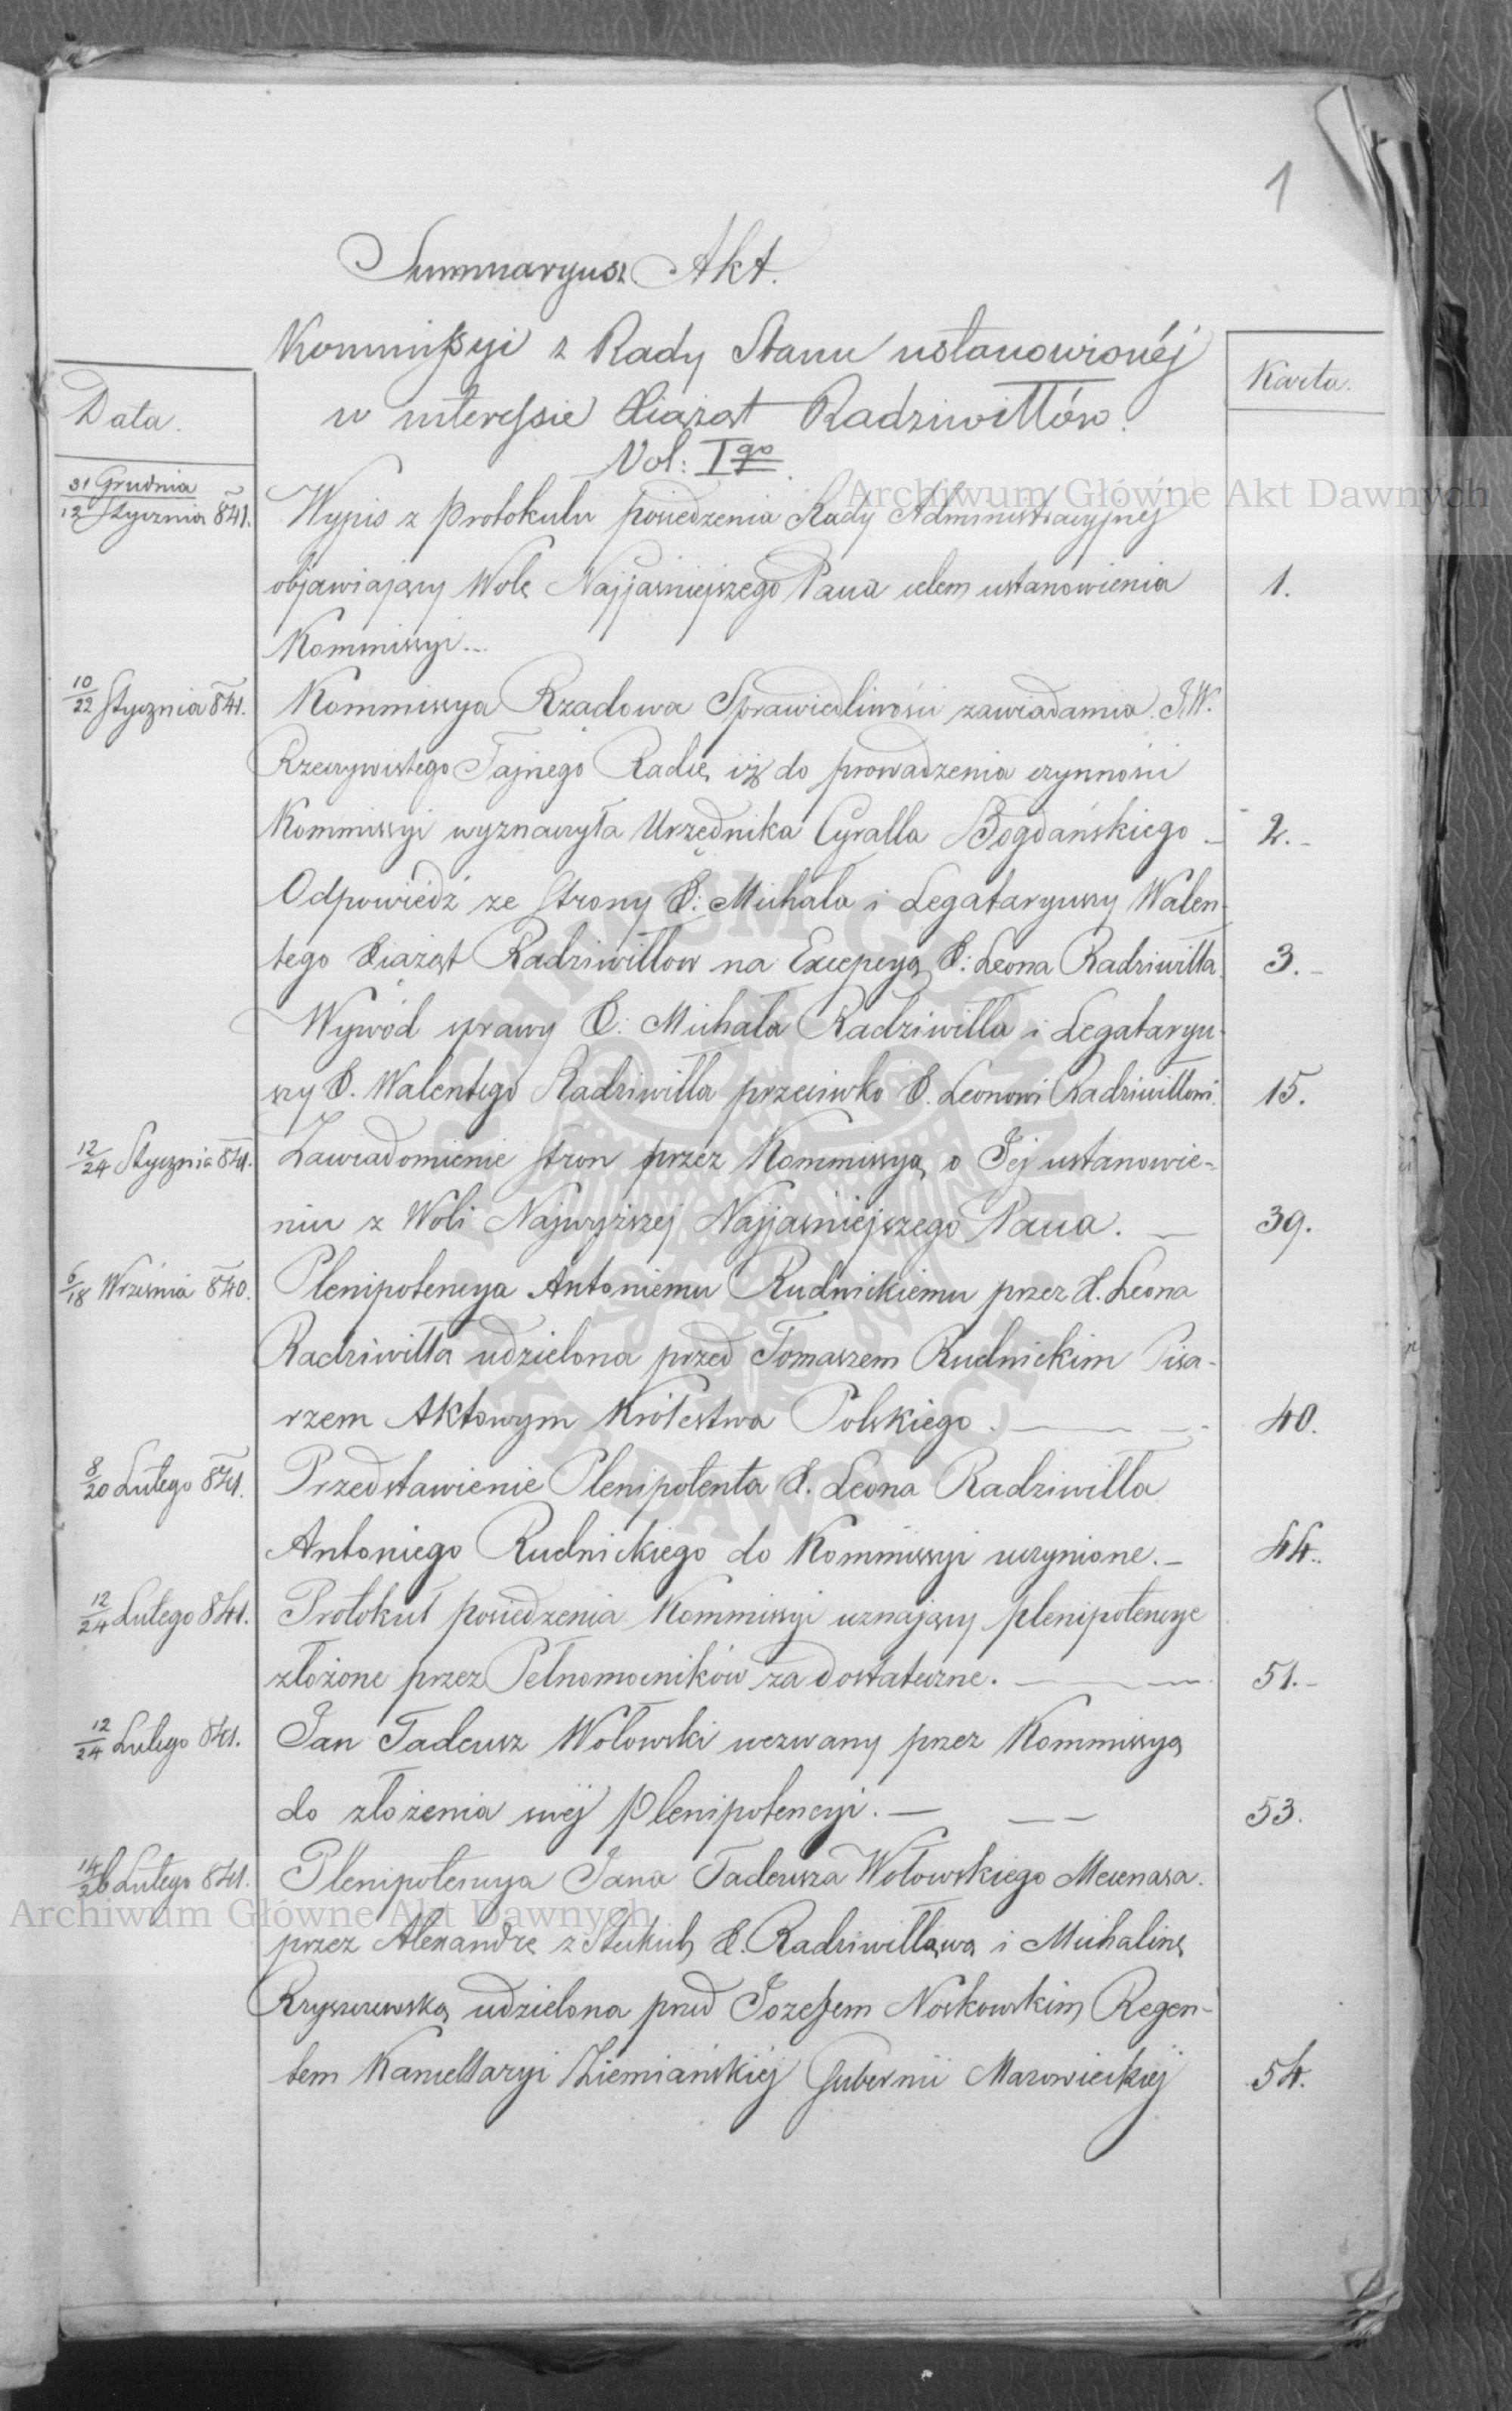 1
Summaryusz Akt.
Kommissyi z Rady Stanu ustanowionéj
w interessie Xiążąt Radziwiłłów.
Vol: Igo
Data.
Karta.
31 Grudnia
12 Stycznia 841.
Wypis z protokułu posiedzenia Rady Administracyjnej
objawiający Wolę Najjaśniejszego Pana celem ustanowienia
1.
Kommissyi...
10/22 Stycznia 841.
Kommissya Rządowa Sprawiedliwości zawiadamia J.W.
Rzeczywistego Tajnego Radcę, iż do prowadzenia czynności
Kommissyi wyznaczyła Urzędnika Cyralla Bogdańskiego
2.
Odpowiedź ze strony X: Michała i Legataryuszy Walen-
tego Xiążąt Radziwiłłow na Excepcyą X: Leona Radziwiłła.
3.
Wywód sprawy X: Michała Radziwiłła i Legataryu-
szy X. Walentego Radziwiłła przeciwko X. Leonowi Radziwiłłowi.
15.
12/24 Stycznia 841.
Zawiadomienie stron przez Kommissyą o Jej ustanowie-
niu z Woli Najwyższej Najjaśniejszego Pana.
39.
6/18 Września 840.
Plenipotencya Antoniemu Rudnickiemu przez X. Leona
Radziwiłła udzielona przed Tomaszem Rudnickim Pisa-
rzem Aktowym Królestwa Polskiego.
40.
8/20 Lutego 841.
Przedstawienie Plenipotenta X. Leona Radziwiłła
Antoniego Rudnickiego do Kommissyi uczynione.
44.
12/24 Lutego 841.
Protokuł posiedzenia Kommissyi uznający plenipotencye
złożone przez Pełnomocników za dostateczne.
51.
12/24 Lutego 841.
Jan Tadeusz Wołowski wezwany przez Kommissyą
do złożenia swéj plenipotencyi.
53.
14/26 Lutego 841.
Plenipotencya Jana Tadeusza Wołowskiego Mecenasa
przez Alexandrę z Steckich X. Radziwiłłową i Michalinę
Rzyszczewską udzielona przed Jozefem Noskowskim Regen-
tem Kancellaryi Ziemiańskiéj Gubernii Mazowieckiéj
54.
Archiwum Główne Akt Dawnych
Archiwum Główne Akt Dawnych
ARCHIWUM GŁÓWNE AKT DAWNYCH